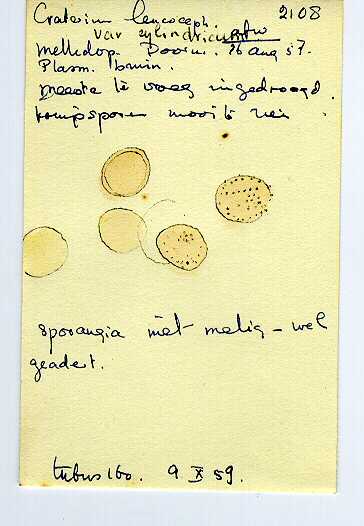 Craterium leucoceph. 2108
var cylindricum
Doorn. 26 aug 57.
Plasm. bruin.
meeste te vroeg ingedroogd.
kompsporen mooi te zien
sporangia niet melig - wel
geadert.
tubus 160. 9 X 59.